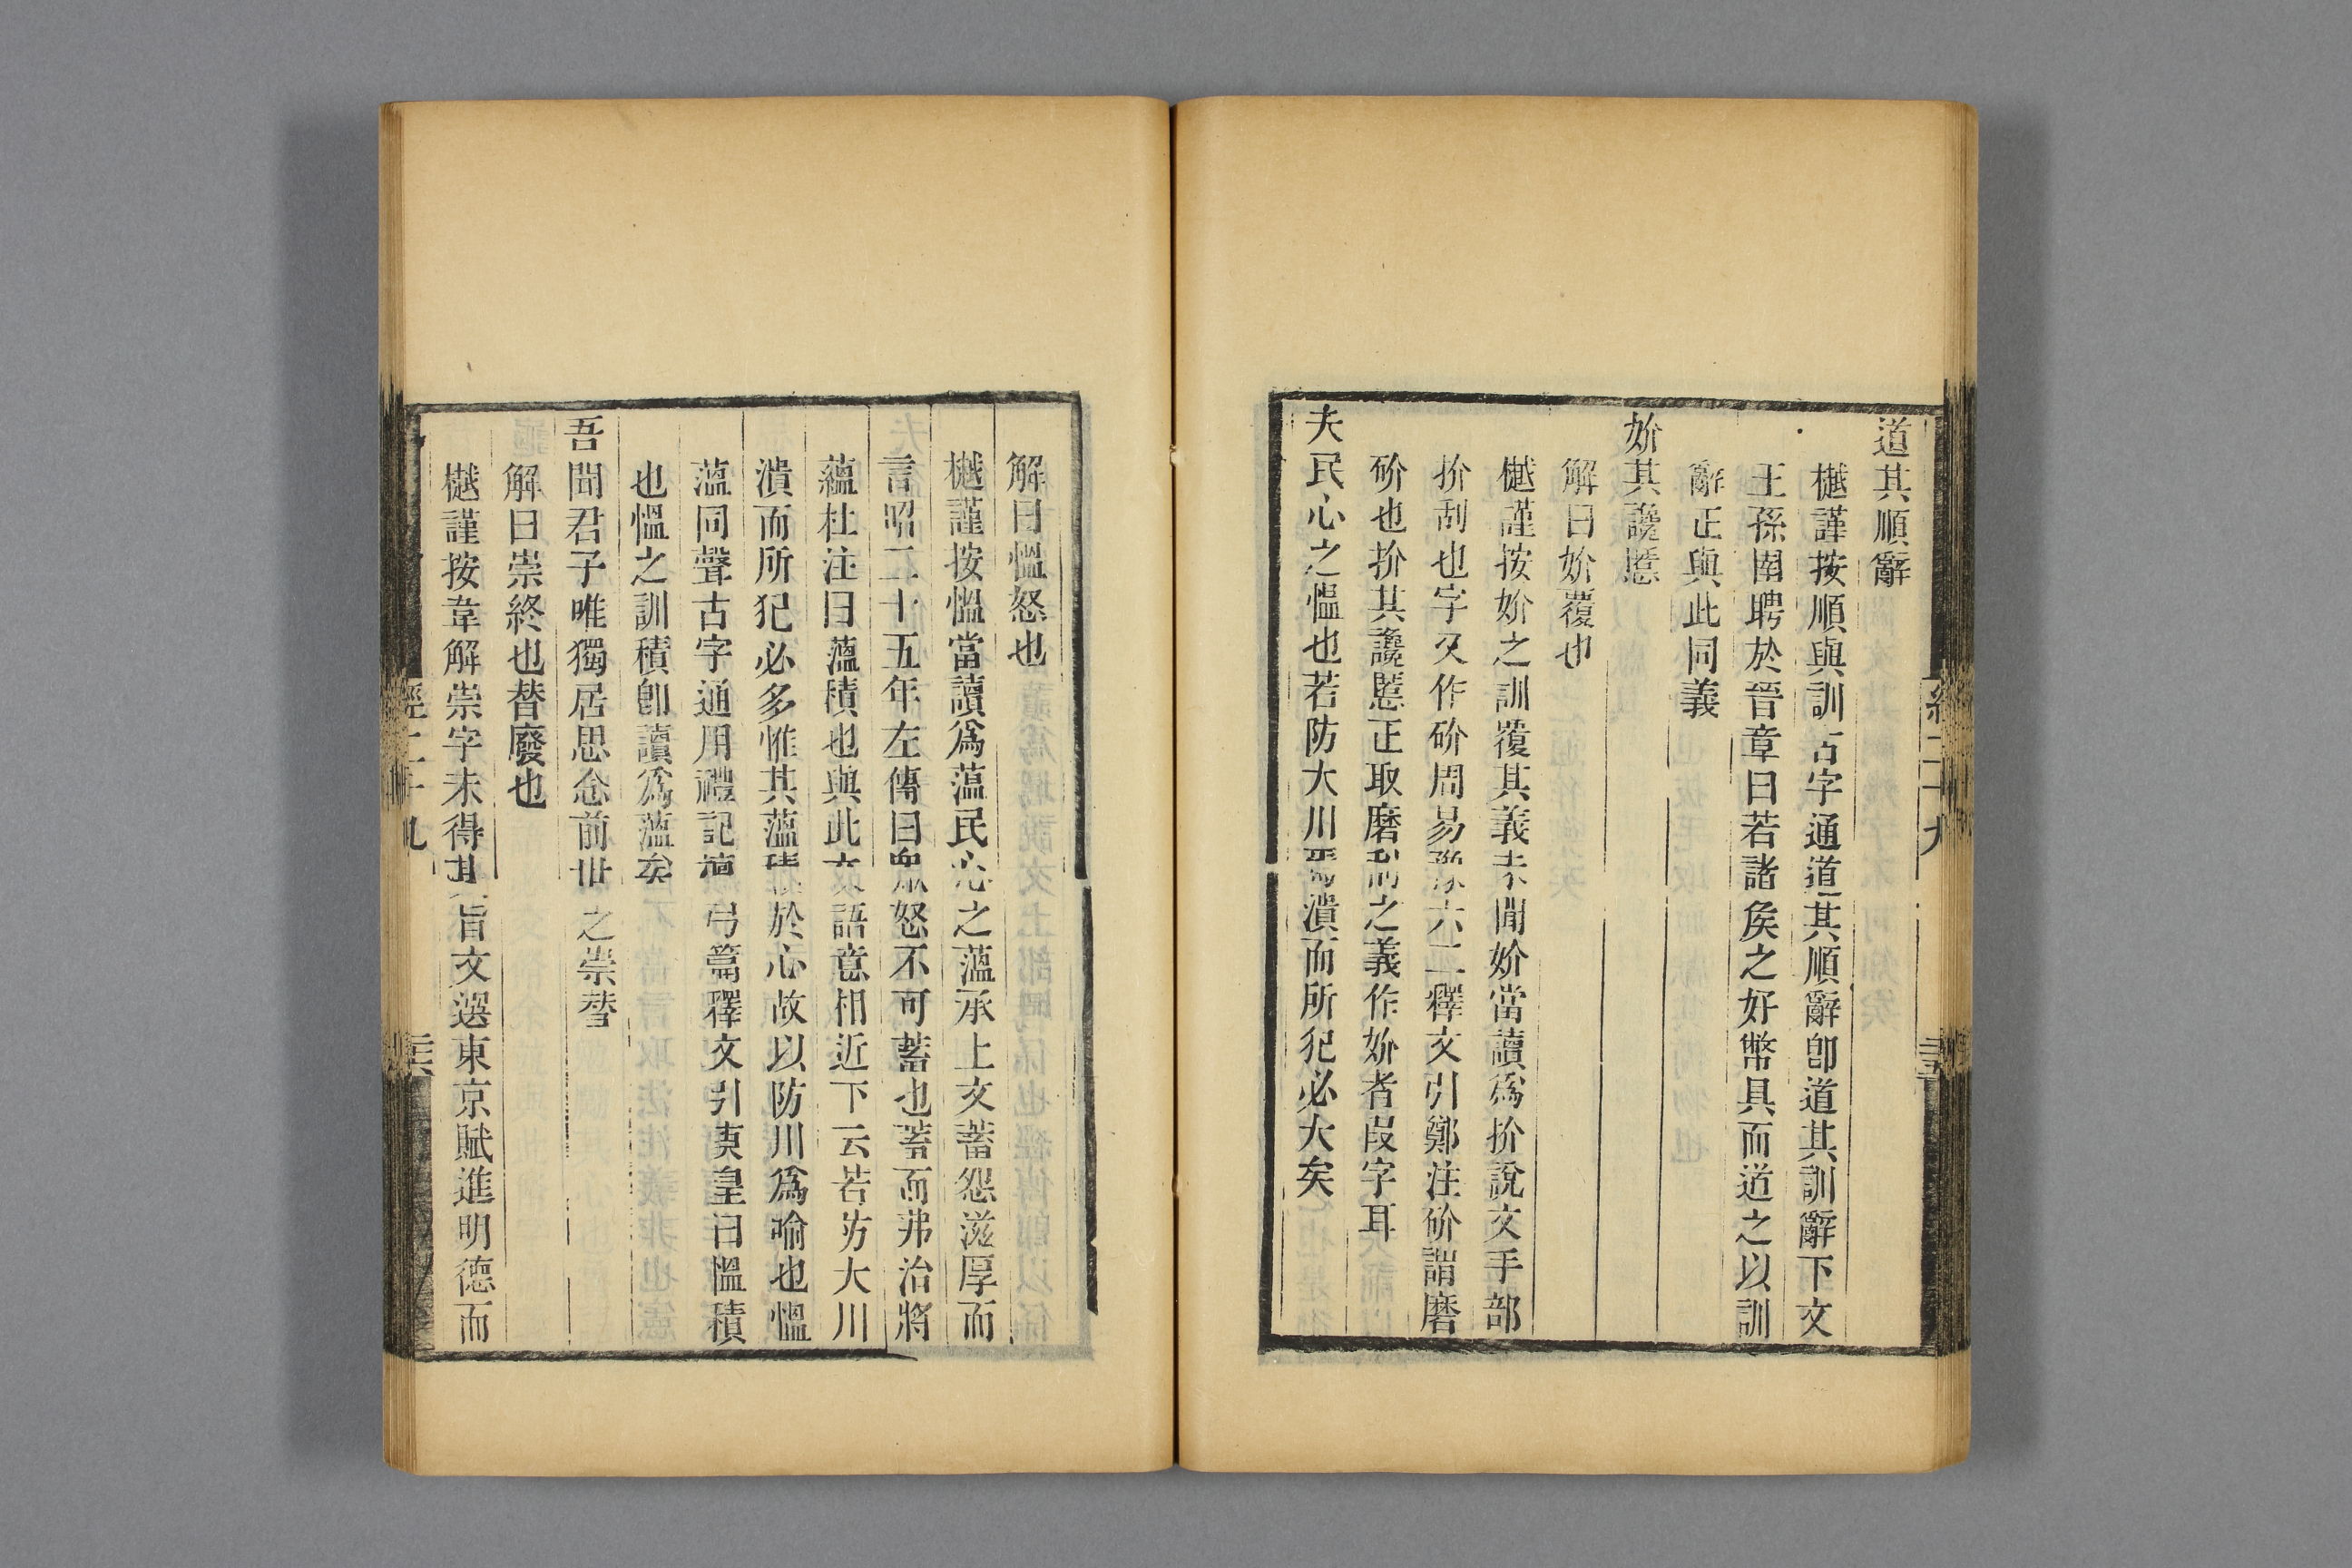 道其順辭
樾謹按順與訓古字通道其順辭卽道其訓辭下文
王孫圉聘於晉章曰若諸矦之好幣具而道之以訓
辭正與此同義
妎其讒慝
解曰妎覆也
樾謹按妎之訓覆其義未聞妎當讀爲扴說文手部
扴刮也字又作砎周易豫六二釋文引鄭注砎謂磨
砎也扴其讒慝正取磨刮之義作妎者叚字耳
夫民心之慍也若防大川焉潰而所犯必大矣
解曰慍怒也
樾謹按慍當讀爲薀民心之薀承上文蓄怨滋厚而
言昭二十五年左傳曰眾怒不可蓄也蓄而弗治將
蘊杜注曰薀積也與此文語意相近下云若防大川
潰而所犯必多惟其薀積於心故以防川爲喻也慍
薀同聲古字通用禮記檀弓篇釋文引庾皇曰慍積
也慍之訓積卽讀爲薀矣
吾聞君子唯獨居思念前世之崇替
解曰崇終也替廢也
樾謹按韋解崇字未得其旨文選東京賦進明德而